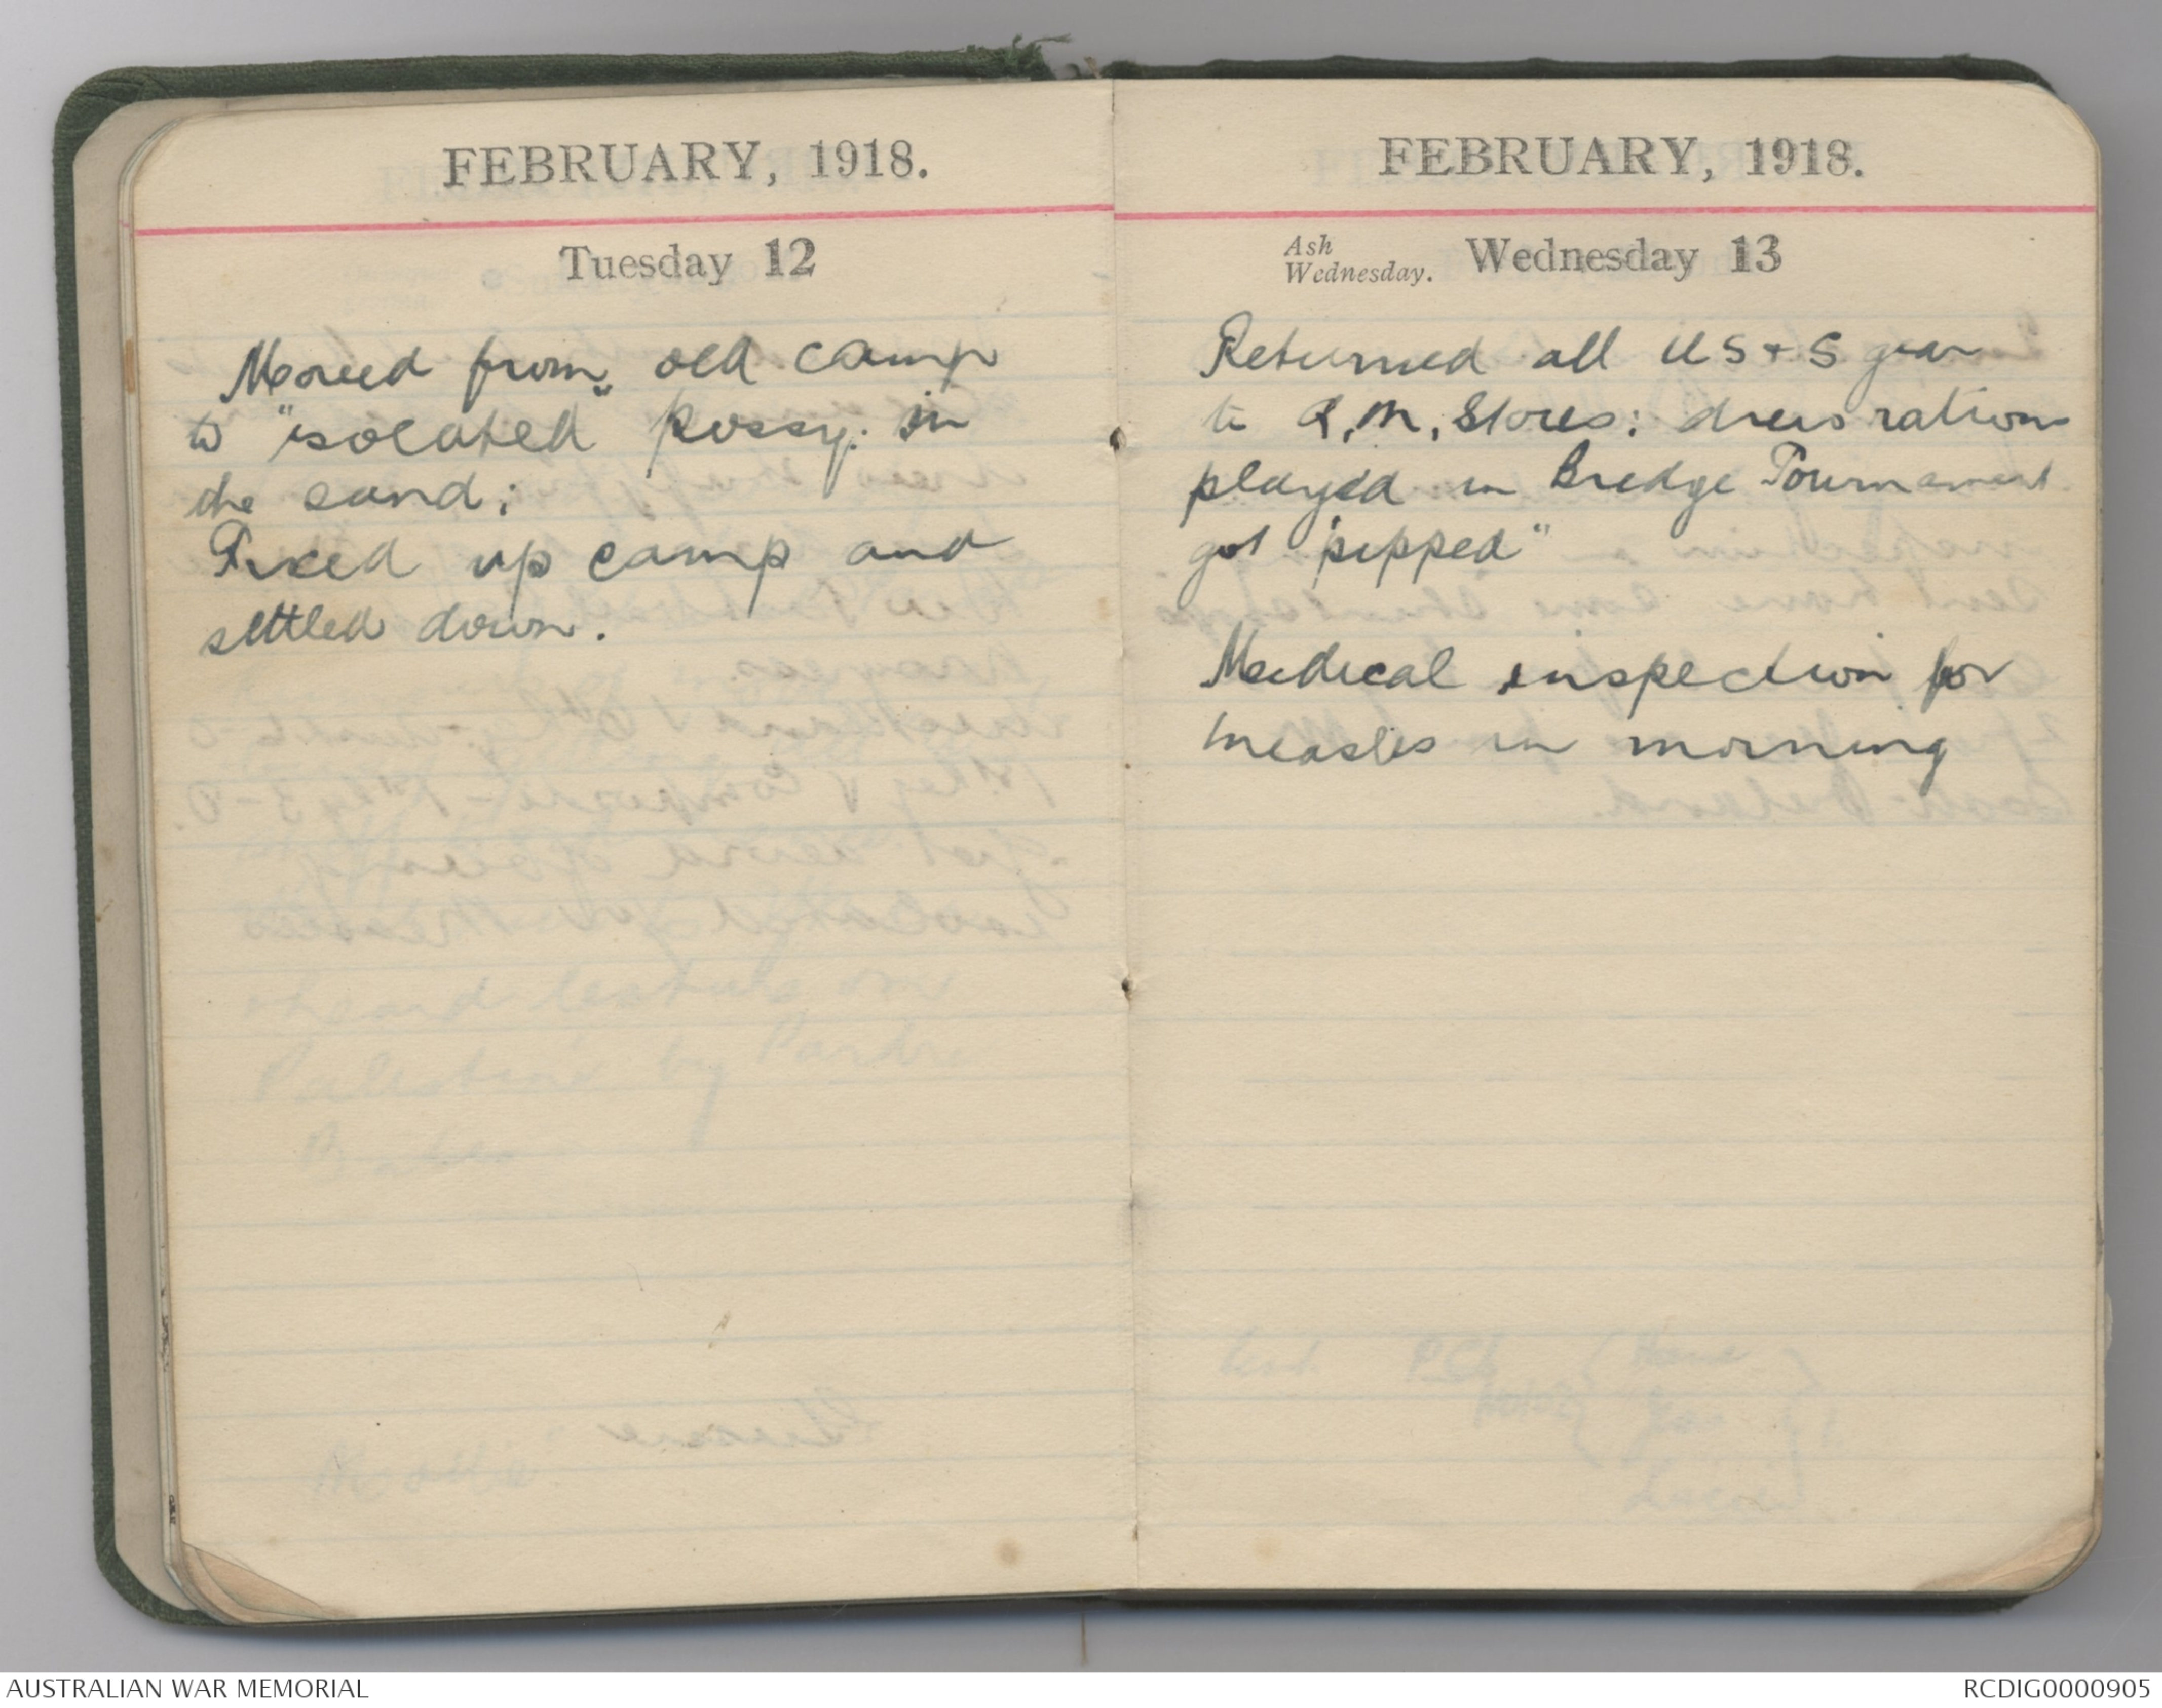 FEBRUARY, 1918.
Tuesday 12
Moved from old camp
to "isolated" possy: in
the sand;
Fixed up camp and
settled down.
heard lecture on
Palestine by Padre
FEBRUARY, 1918.
Ash
Wednesday. Wednesday 13
Returned all US+S gear
to Q.M. Stores; drew rations
played in Bridge Tournament
got "pipped"
Medical inspection for
measles in morning
AUSTRALIAN WAR MEMORIAL
RCDIG0000905